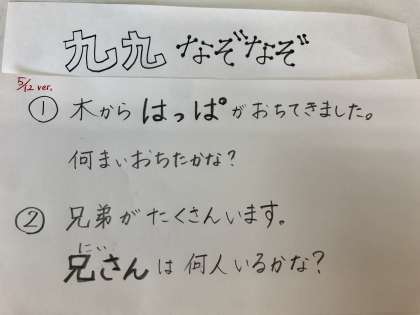 九九 なぞなぞ
5/12 ver.
① 木から はっぱ がおちてきました。
何まいおちたかな？
② 兄弟がたくさんいます。
にい
兄さん は 何人いるかな？